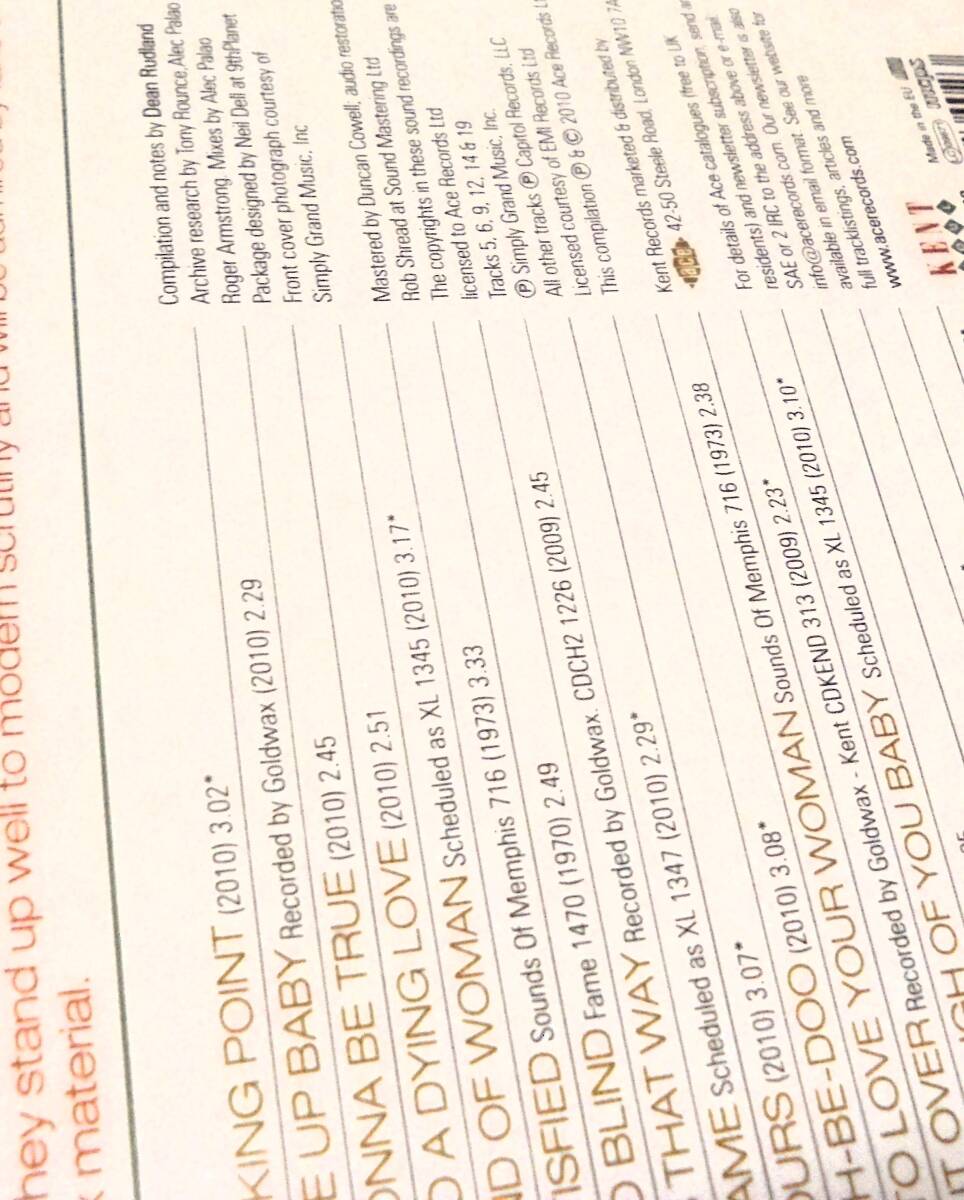 hey stand up well to modern scrutiny and will be
material.
KING POINT (2010) 3.02*
E UP BABY Recorded by Goldwax (2010) 2.29
ONNA BE TRUE (2010) 2.45
A DYING LOVE (2010) 2.51
D OF WOMAN Scheduled as XL 1345 (2010) 3.17*
ISFIED Sounds Of Memphis 716 (1973) 3.33
BLIND Fame 1470 (1970) 2.49
THAT WAY Recorded by Goldwax. CDCH2 1226 (2009) 2.45
AME Scheduled as XL 1347 (2010) 2.29*
URS (2010) 3.07*
-BE-DOO (2010) 3.08*
H-BE YOUR WOMAN Sounds Of Memphis 716 (1973) 2.38
O LOVE YOUR WOMAN Sounds Of Memphis 2.23*
OVER Recorded by Goldwax - Kent CDKEND 313 (2009)
GH OF YOU BABY Scheduled as XL 1345 (2010) 3.10*
Compilation and notes by Dean Rudland
Archive research by Tony Rounce, Alec Palao
Roger Armstrong. Mixes by Alec Palao
Package designed by Neil Dell at 9thPlanet
Front cover photograph courtesy of
Simply Grand Music, Inc
Mastered by Duncan Cowell; audio restoratio
Rob Shread at Sound Mastering Ltd
The copyrights in these sound recordings are
licensed to Ace Records Ltd
Tracks 5, 6, 9, 12, 14 & 19
℗ Simply Grand Music, Inc.
All other tracks ℗ Capitol Records, LLC
Licensed courtesy of EMI Records Ltd
This compilation ℗ & © 2010 Ace Records L
Kent Records marketed & distributed by
ace 42-50 Steele Road, London NW10 7A
For details of Ace catalogues (free to UK
residents) and newsletter subscription, send an
SAE or 2 IRC to the address above or e-mail
info@acerecords.com. Our newsletter is also
available in email format. See our website for
full tracklistings, articles and more
www.acerecords.com
KENT
Made in the EU